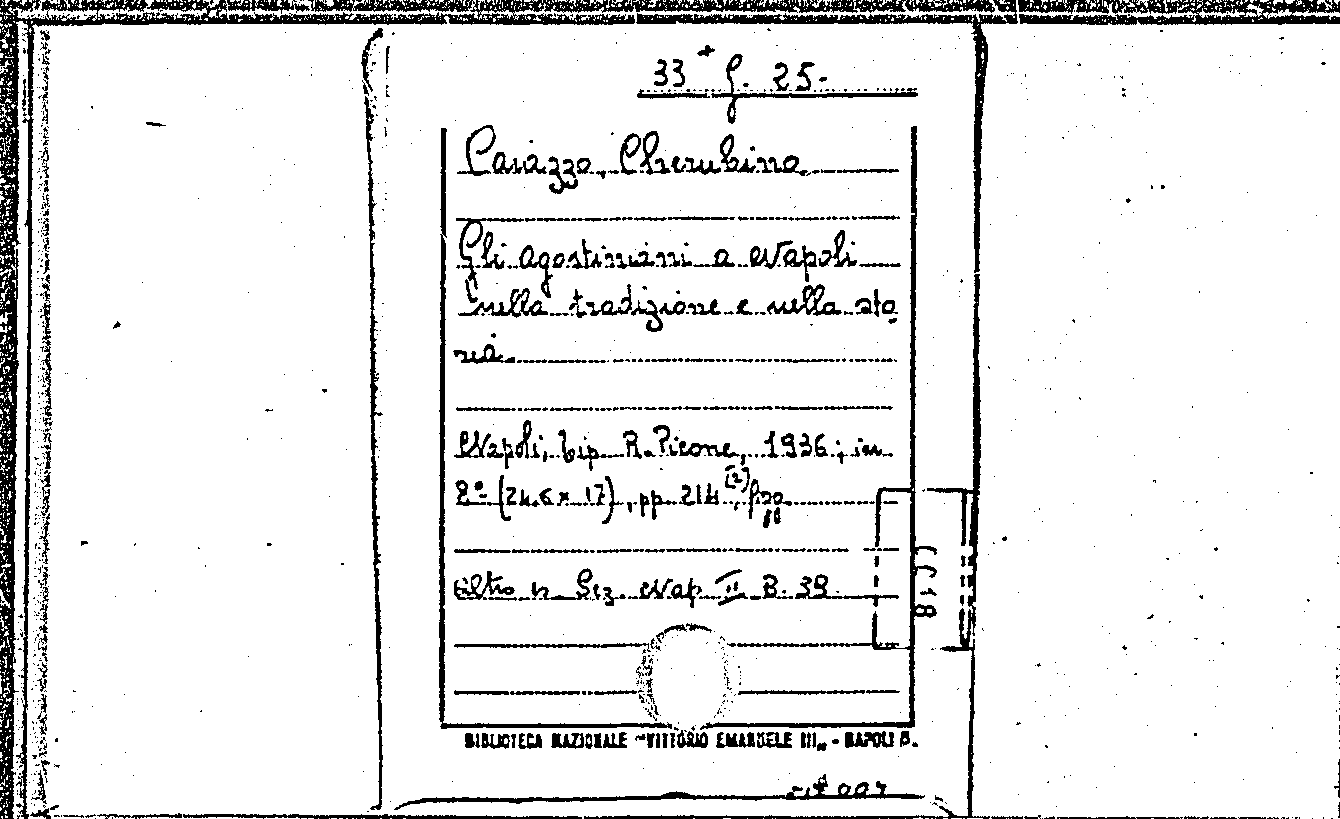 33 + g. 25.
Caiazzo, Cherubino
Gli agostiniani a Napoli
nella tradizione e nella sto
ria.
Napoli, tip. R. Picone, 1936; in
8º (24.6 x 17), pp. 214 [2], fro
Altro in Sez. Nap. II B. 39.
BIBLIOTECA NAZIONALE "VITTORIO EMANUELE III" - NAPOLI